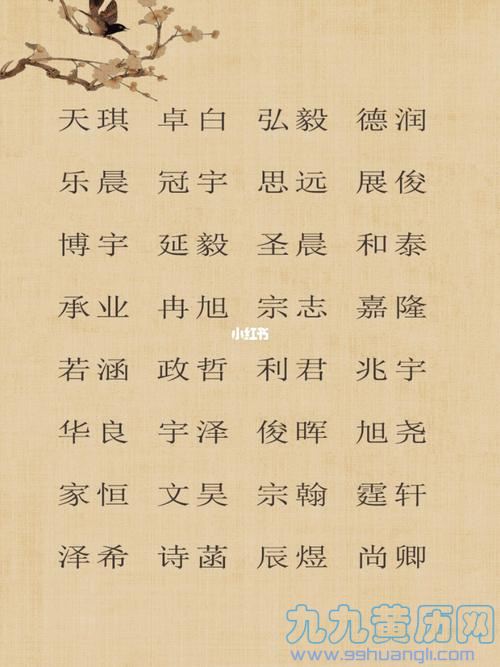 天琪 卓白 弘毅 德润
乐晨 冠宇 思远 展俊
博宇 延毅 圣晨 和泰
承业 冉旭 宗志 嘉隆
小红书
若涵 政哲 利君 兆宇
华良 宇泽 俊晖 旭尧
家恒 文昊 宗翰 霆轩
泽希 诗菡 辰煜 尚卿
九九黄历网
www.99huangli.com